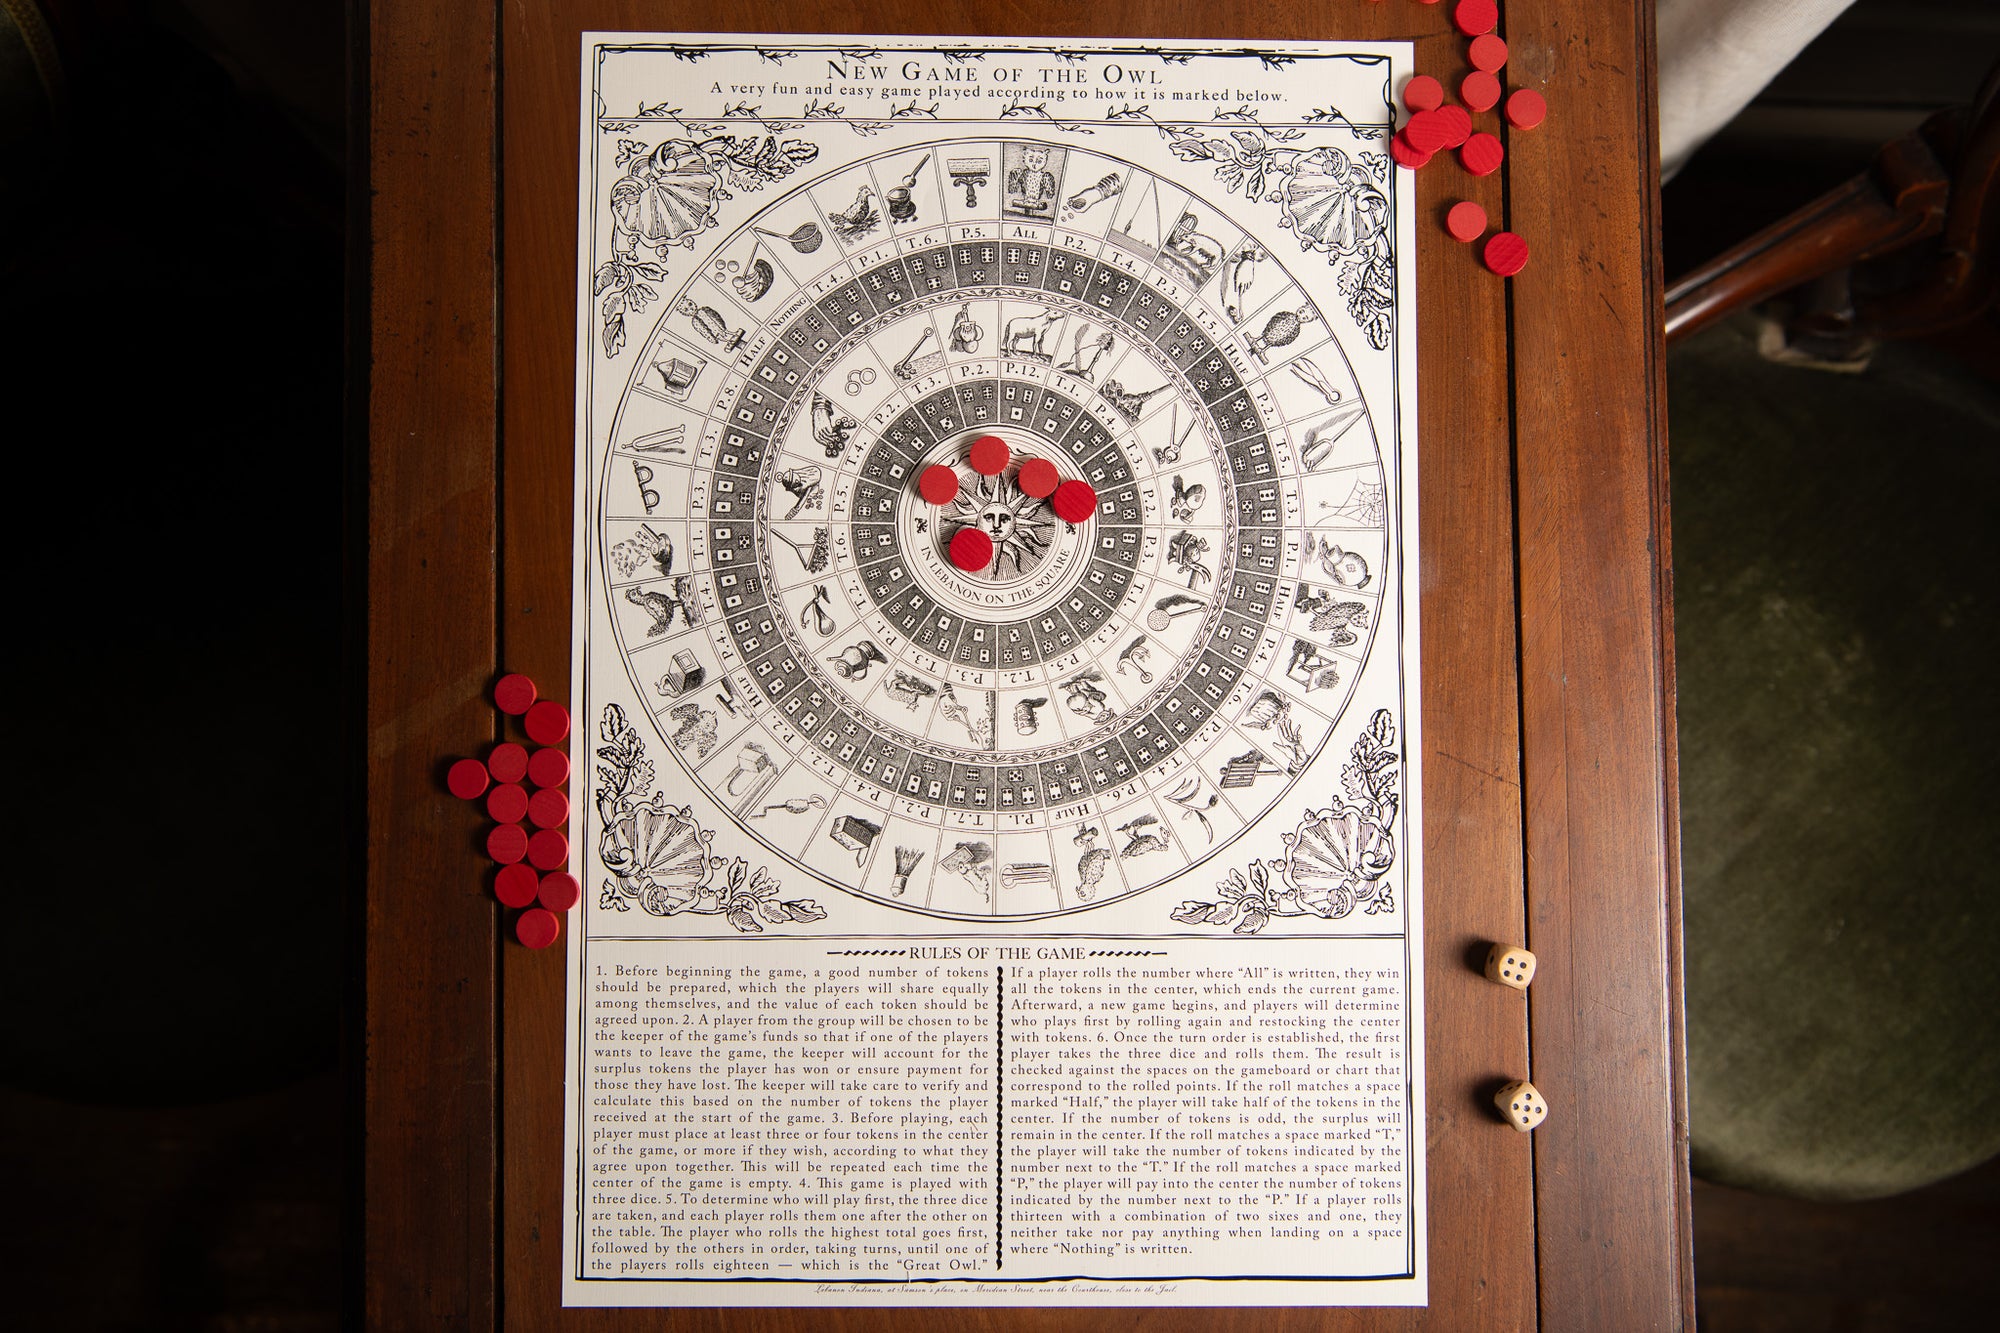 New Game of the Owl
A very fun and easy game played according to how it is marked below.
All
P.2.
T.4.
P.3.
T.5.
Half
P.2.
T.5.
T.3.
P.1.
Half
P.4.
T.6.
P.2.
T.4.
P.6.
Half
P.1.
T.7.
P.2.
P.4.
T.2.
P.2.
Half
P.4.
T.4.
T.1.
P.3.
T.3.
P.8.
Half
Nothing
T.4.
P.1.
T.6.
P.5.
P.12.
T.1.
P.4.
T.3.
P.2.
P.3.
T.1.
T.3.
P.5.
T.2.
P.3.
T.3.
P.1.
T.2.
T.6.
P.5.
T.4.
P.2.
T.3.
P.2.
IN LEBANON ON THE SQUARE
RULES OF THE GAME
1. Before beginning the game, a good number of tokens
should be prepared, which the players will share equally
among themselves, and the value of each token should be
agreed upon. 2. A player from the group will be chosen to be
the keeper of the game's funds so that if one of the players
wants to leave the game, the keeper will account for the
surplus tokens the player has won or ensure payment for
those they have lost. The keeper will take care to verify and
calculate this based on the number of tokens the player
received at the start of the game. 3. Before playing, each
player must place at least three or four tokens in the center
of the game, or more if they wish, according to what they
agree upon together. This will be repeated each time the
center of the game is empty. 4. This game is played with
three dice. 5. To determine who will play first, the three dice
are taken, and each player rolls them one after the other on
the table. The player who rolls the highest total goes first,
followed by the others in order, taking turns, until one of
the players rolls eighteen — which is the “Great Owl.”
If a player rolls the number where “All” is written, they win
all the tokens in the center, which ends the current game.
Afterward, a new game begins, and players will determine
who plays first by rolling again and restocking the center
with tokens. 6. Once the turn order is established, the first
player takes the three dice and rolls them. The result is
checked against the spaces on the gameboard or chart that
correspond to the rolled points. If the roll matches a space
marked “Half,” the player will take half of the tokens in the
center. If the number of tokens is odd, the surplus will
remain in the center. If the roll matches a space marked “T,”
the player will take the number of tokens indicated by the
number next to the “T.” If the roll matches a space marked
“P,” the player will pay into the center the number of tokens
indicated by the number next to the “P.” If a player rolls
thirteen with a combination of two sixes and one, they
neither take nor pay anything when landing on a space
where “Nothing” is written.
Lebanon Indiana, at Samson's place, on Meridian Street, near the Courthouse, close to the Jail.